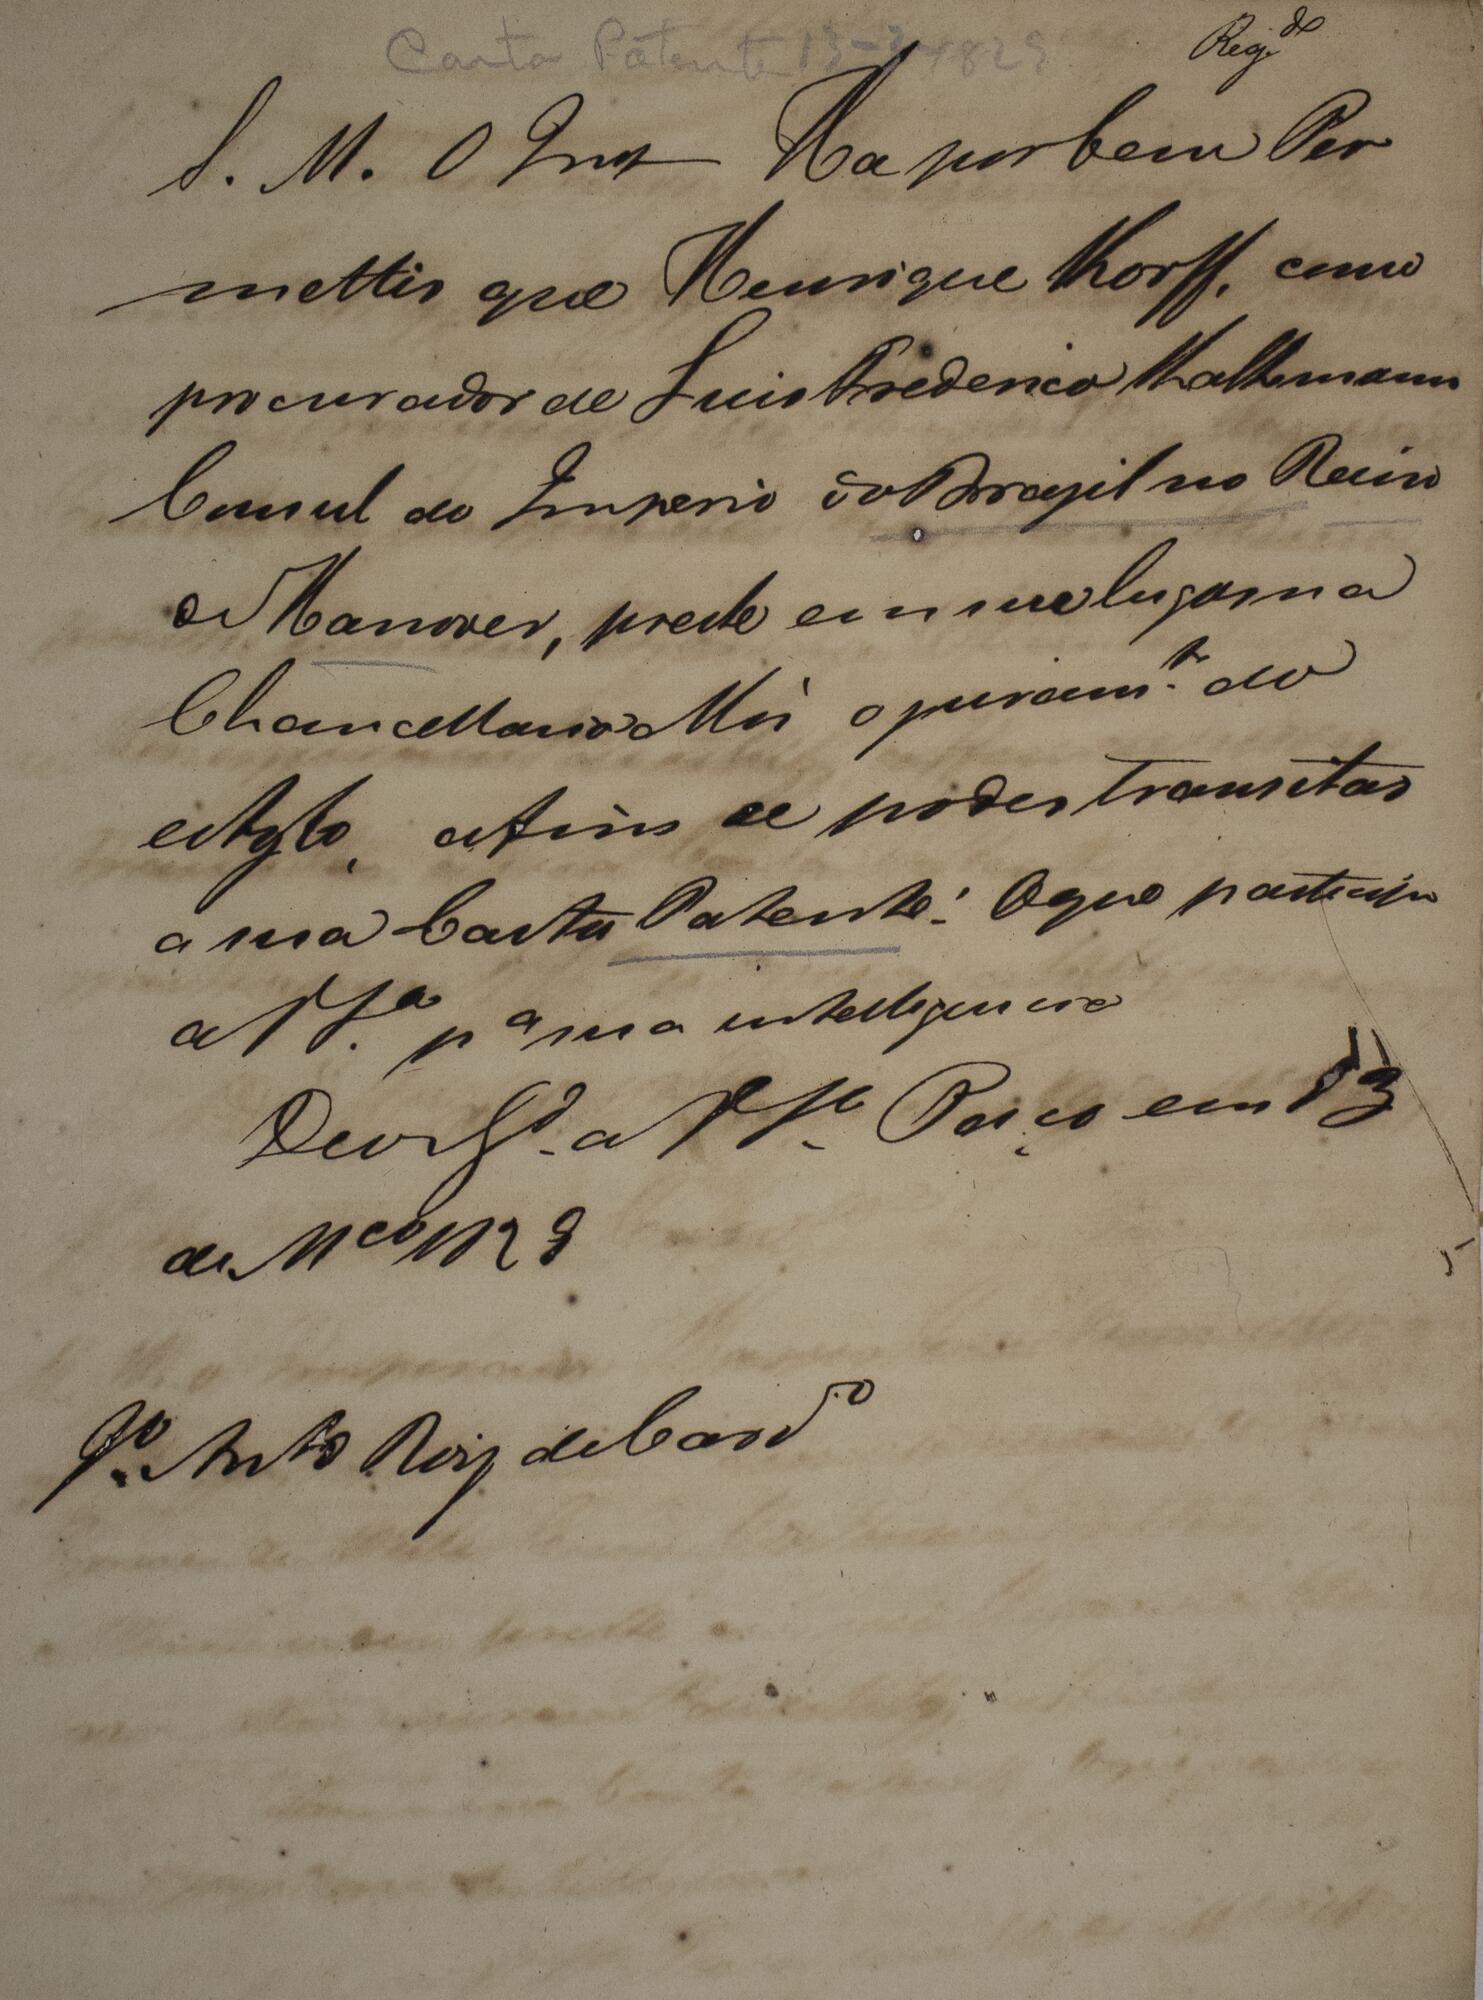 Carta Patente 13-3-1829
Reg.do
S. M. O Imp Ha por bem Per
mettir que Henrique Korff, como
procurador de Luis Frederico Kalkmann
Consul do Imperio do Brazil no Reino
de Hanover, preste em seu lugar na
Chancellaria Mór o juram.to do
estylo, afim de poder transitar
a sua Carta Patente: O que participo
a V. S.a p.a sua intelligencia
Deos G.de a V. S.a Paço em 13
de M.ço 1829
Jo. Anto Roiz de Carv.o